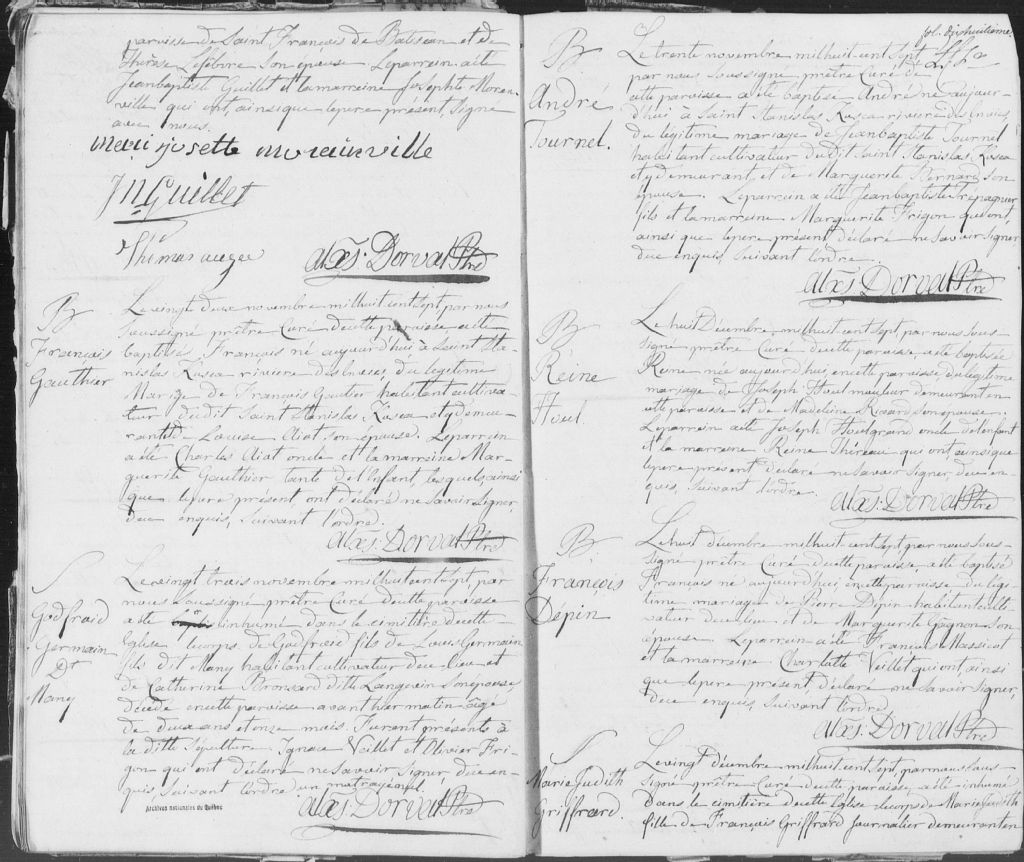 paroisse de Saint François de Batiscan et de
Thérèse Lefebvre son épouse Le parrain a été
Jean baptiste Guillet et la marraine Josephte Morin
ville qui ont, ainsi que le pere présent, signé
avec nous.
morinville
Jn Guillet
Thimas augée
Alexs. Dorval Ptre
B
François
Gauthier
Le vingt deux novembre mil huit cent sept par nous
soussigné prêtre Curé de cette paroisse a été
baptisé François né aujourd'hui à Saint Sta-
nislas Kusca riviere des Envies, du legitime
Mariage de François Gautier habitant cultiva-
teur dudit Saint Stanislas Kusca et y demeu-
rant et de Louise Aiat son épouse. Le parrain
a été Charles Aiat oncle et la marraine Mar-
guerite Gauthier tante de l'Enfant, lesquels, ainsi
que le pere présent, ont déclaré ne savoir signer,
de ce enquis, suivant l'ordre.
Alexs. Dorval Ptre
S
Godfraid
Germain
Dt
Many
Le vingt trois novembre mil huit cent sept, par
nous soussigné prêtre Curé de cette paroisse
a été inhumé dans le cimitière de cette
Eglise le corps de Godfraid fils de Louis Germain
fils dit Many habitant cultivateur de ce lieu et
de Catherine Bronsard dite Langevin son epouse,
décédé en cette paroisse avant hier matin agé
de deux ans et onze mois. Furent présents à
la dite Sépulture Ignace Veillet et Olivier Fri-
gon qui ont déclaré ne savoir signer de ce en-
quis, suivant l'ordre un mot rayé nul.
Alexs. Dorval Ptre
Archives nationales du Québec
fol. dixhuitieme
B
André
Tournel.
Le trente novembre mil huit cent sept
par nous soussigné prêtre Curé de
cette paroisse a été baptisé André né aujour-
d'hui à Saint Stanislas Kusca riviere des Envies,
du legitime mariage de Jean baptiste Tournel
habitant cultivateur du dit Saint Stanislas Kusca
et y demeurant, et de Marguerite Bernard son
épouse. Le parrain a été Jean baptiste Trépagner
fils et la marraine Marguerite Frigon qui ont,
ainsi que le pere présent, déclaré ne savoir signer
de ce enquis suivant l'ordre.
Alexs. Dorval Ptre
B
Reine
Houl.
Le huit Décembre mil huit cent sept par nous sous-
signé prêtre Curé de cette paroisse, a été baptisée
Reine née aujourd'hui, en cette paroisse du legitime
mariage de Joseph Houl mouleur demeurant en
cette paroisse et de Madeleine Ricard son epouse.
Le parrain a été Joseph Houl grand oncle de l'enfant
et la marraine Reine Théreau qui ont ainsi que
le pere présent déclaré ne savoir signer, de ce en-
quis, suivant l'ordre.
Alexs. Dorval Ptre
B
François
Dépin
Le huit décembre mil huit cent sept par nous sous-
signé prêtre Curé de cette paroisse, a été baptisé
François né aujourd'hui, en cette paroisse du legi-
time mariage de Pierre Dépin habitant culti-
vateur de ce lieu et de Marguerite Gagnon son
épouse. Le parrain a été François Massicot
et la marraine Charlotte Veillet qui ont, ainsi
que le pere présent, déclaré ne savoir signer,
de ce enquis, suivant l'ordre.
Alexs. Dorval Ptre
S
Marie Judith
Griffrard.
Le vingt décembre mil huit cent sept, par nous sous-
signé prêtre Curé de cette paroisse, a été inhumé
dans le cimitière de cette Eglise le corps de Marie Judith
fille de François Griffrard Journalier demeurant en